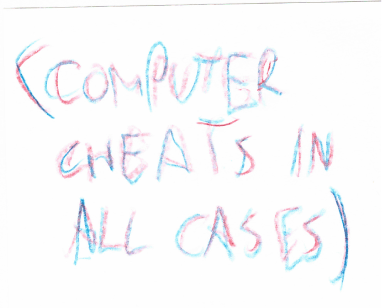 (COMPUTER
CHEATS IN
ALL CASES)